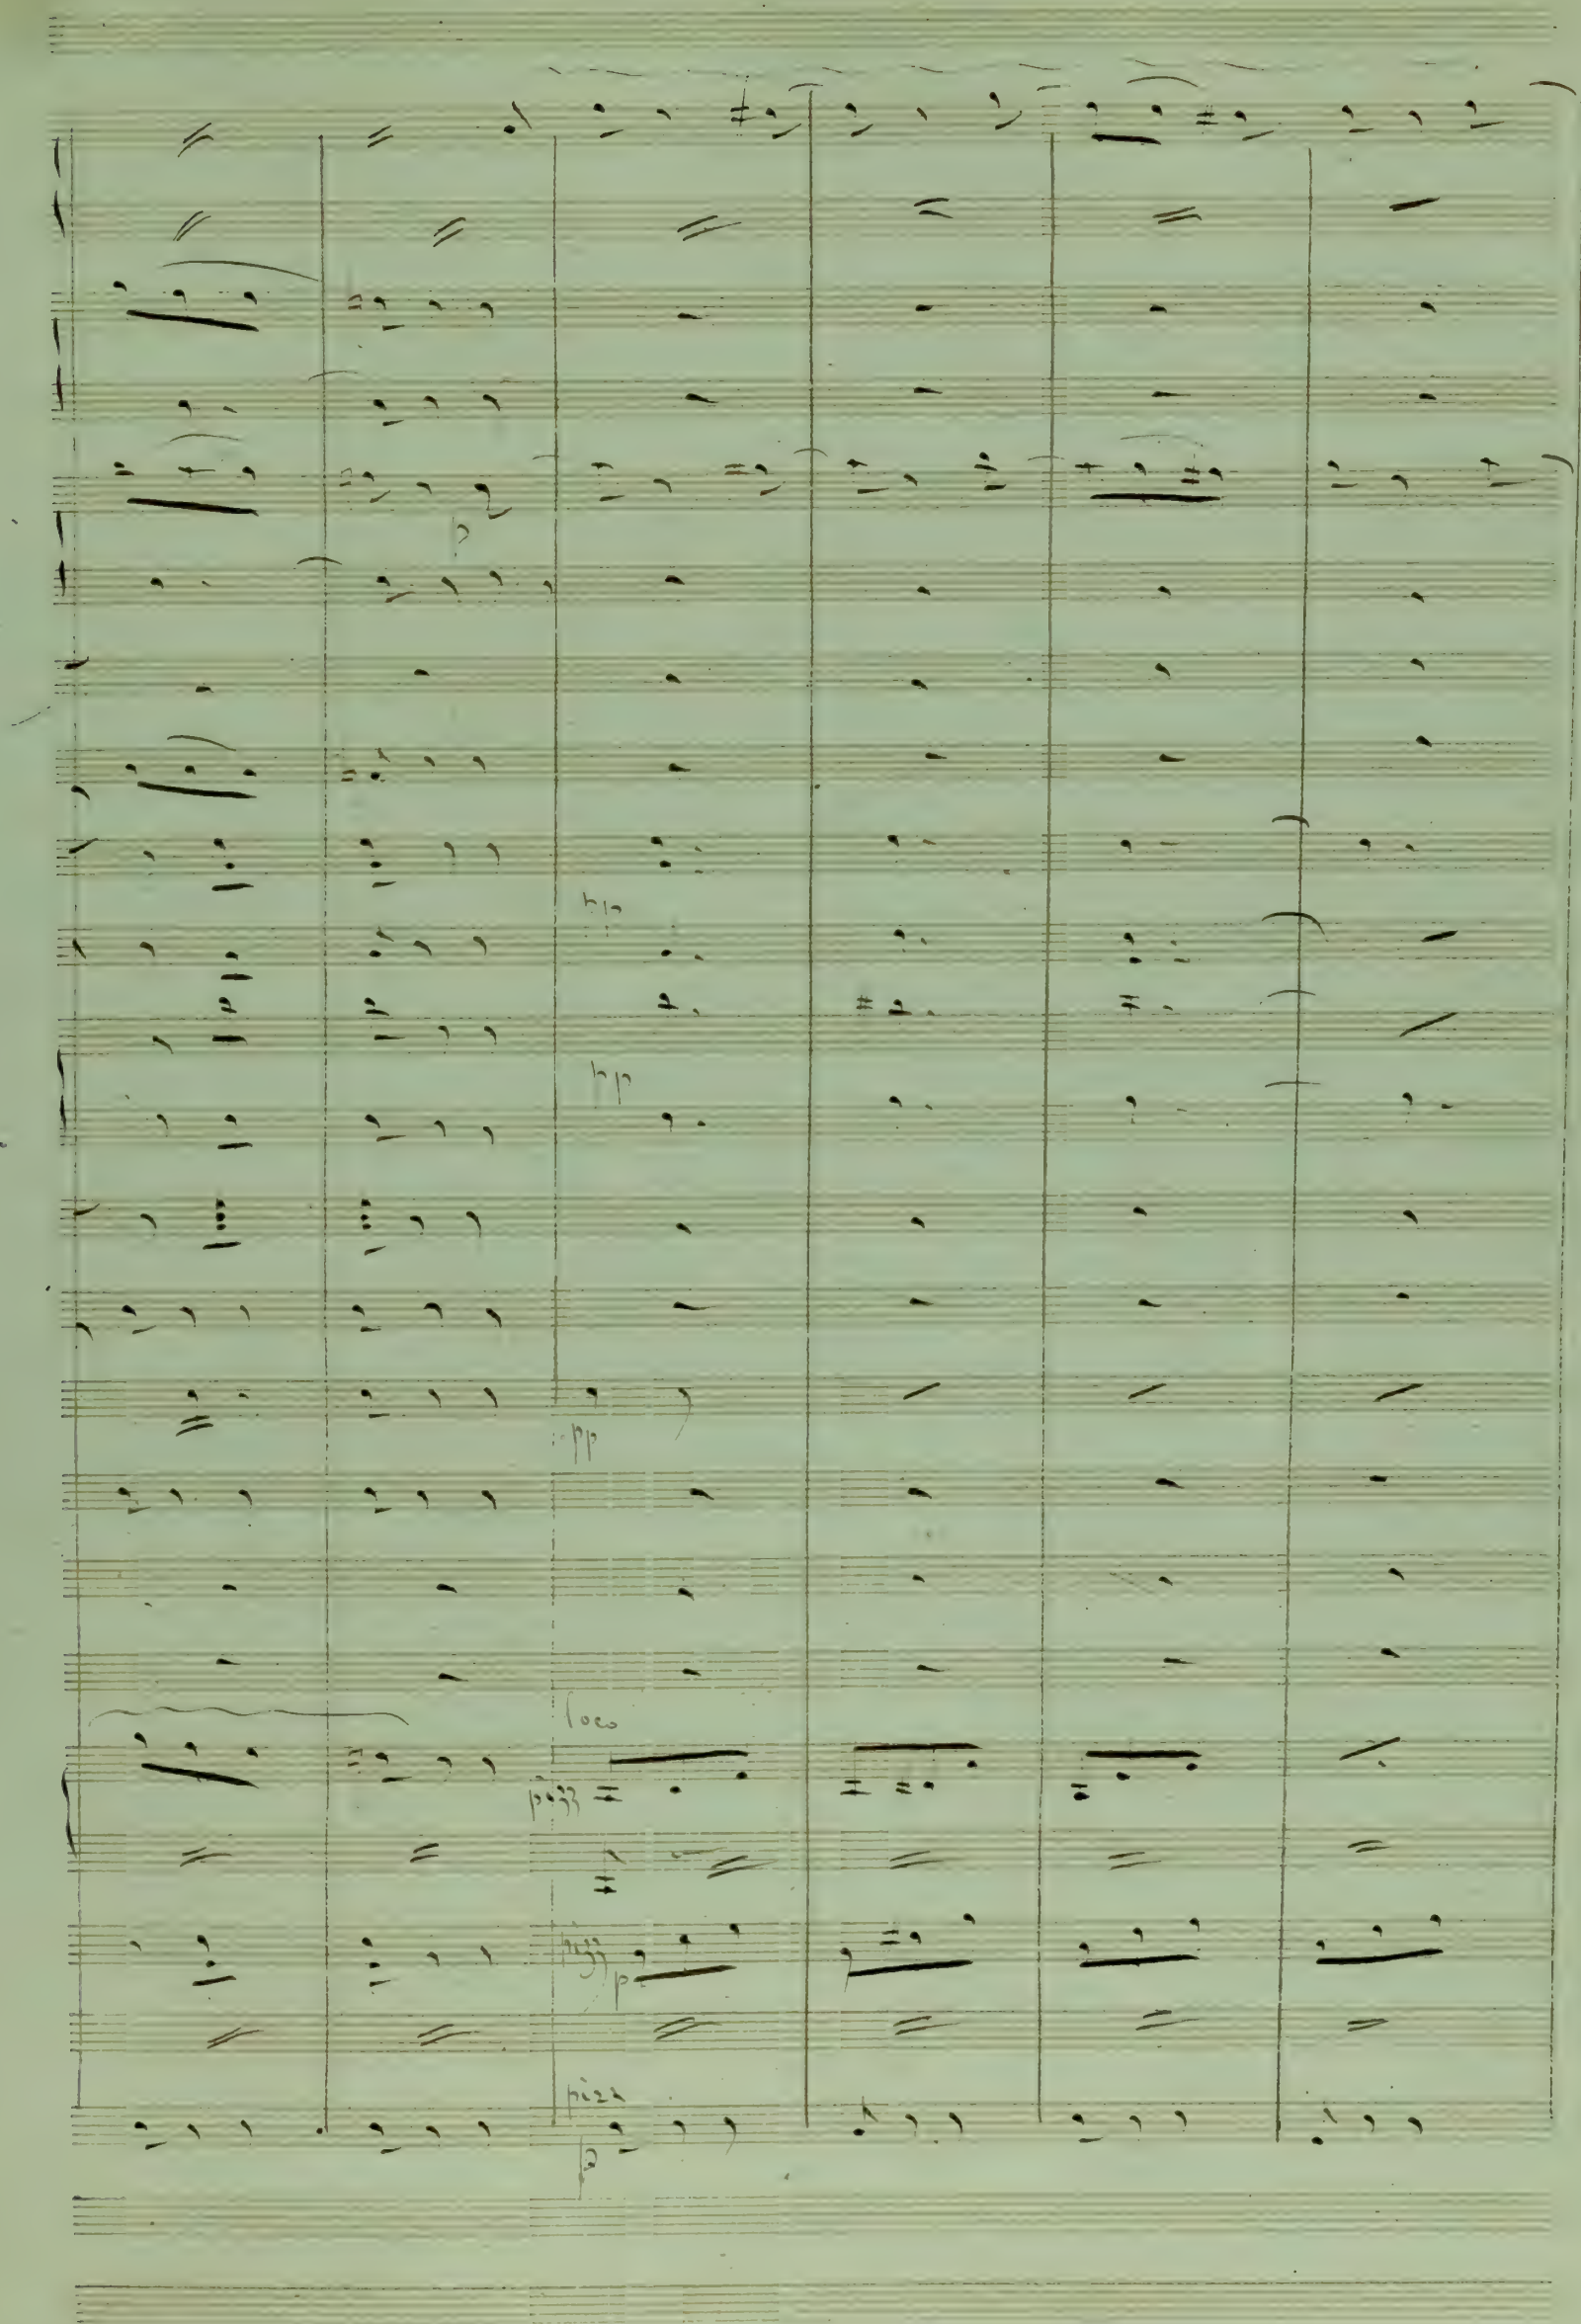 p
pp
pp
pp
loco
pizz
pizz
p
pizz
p